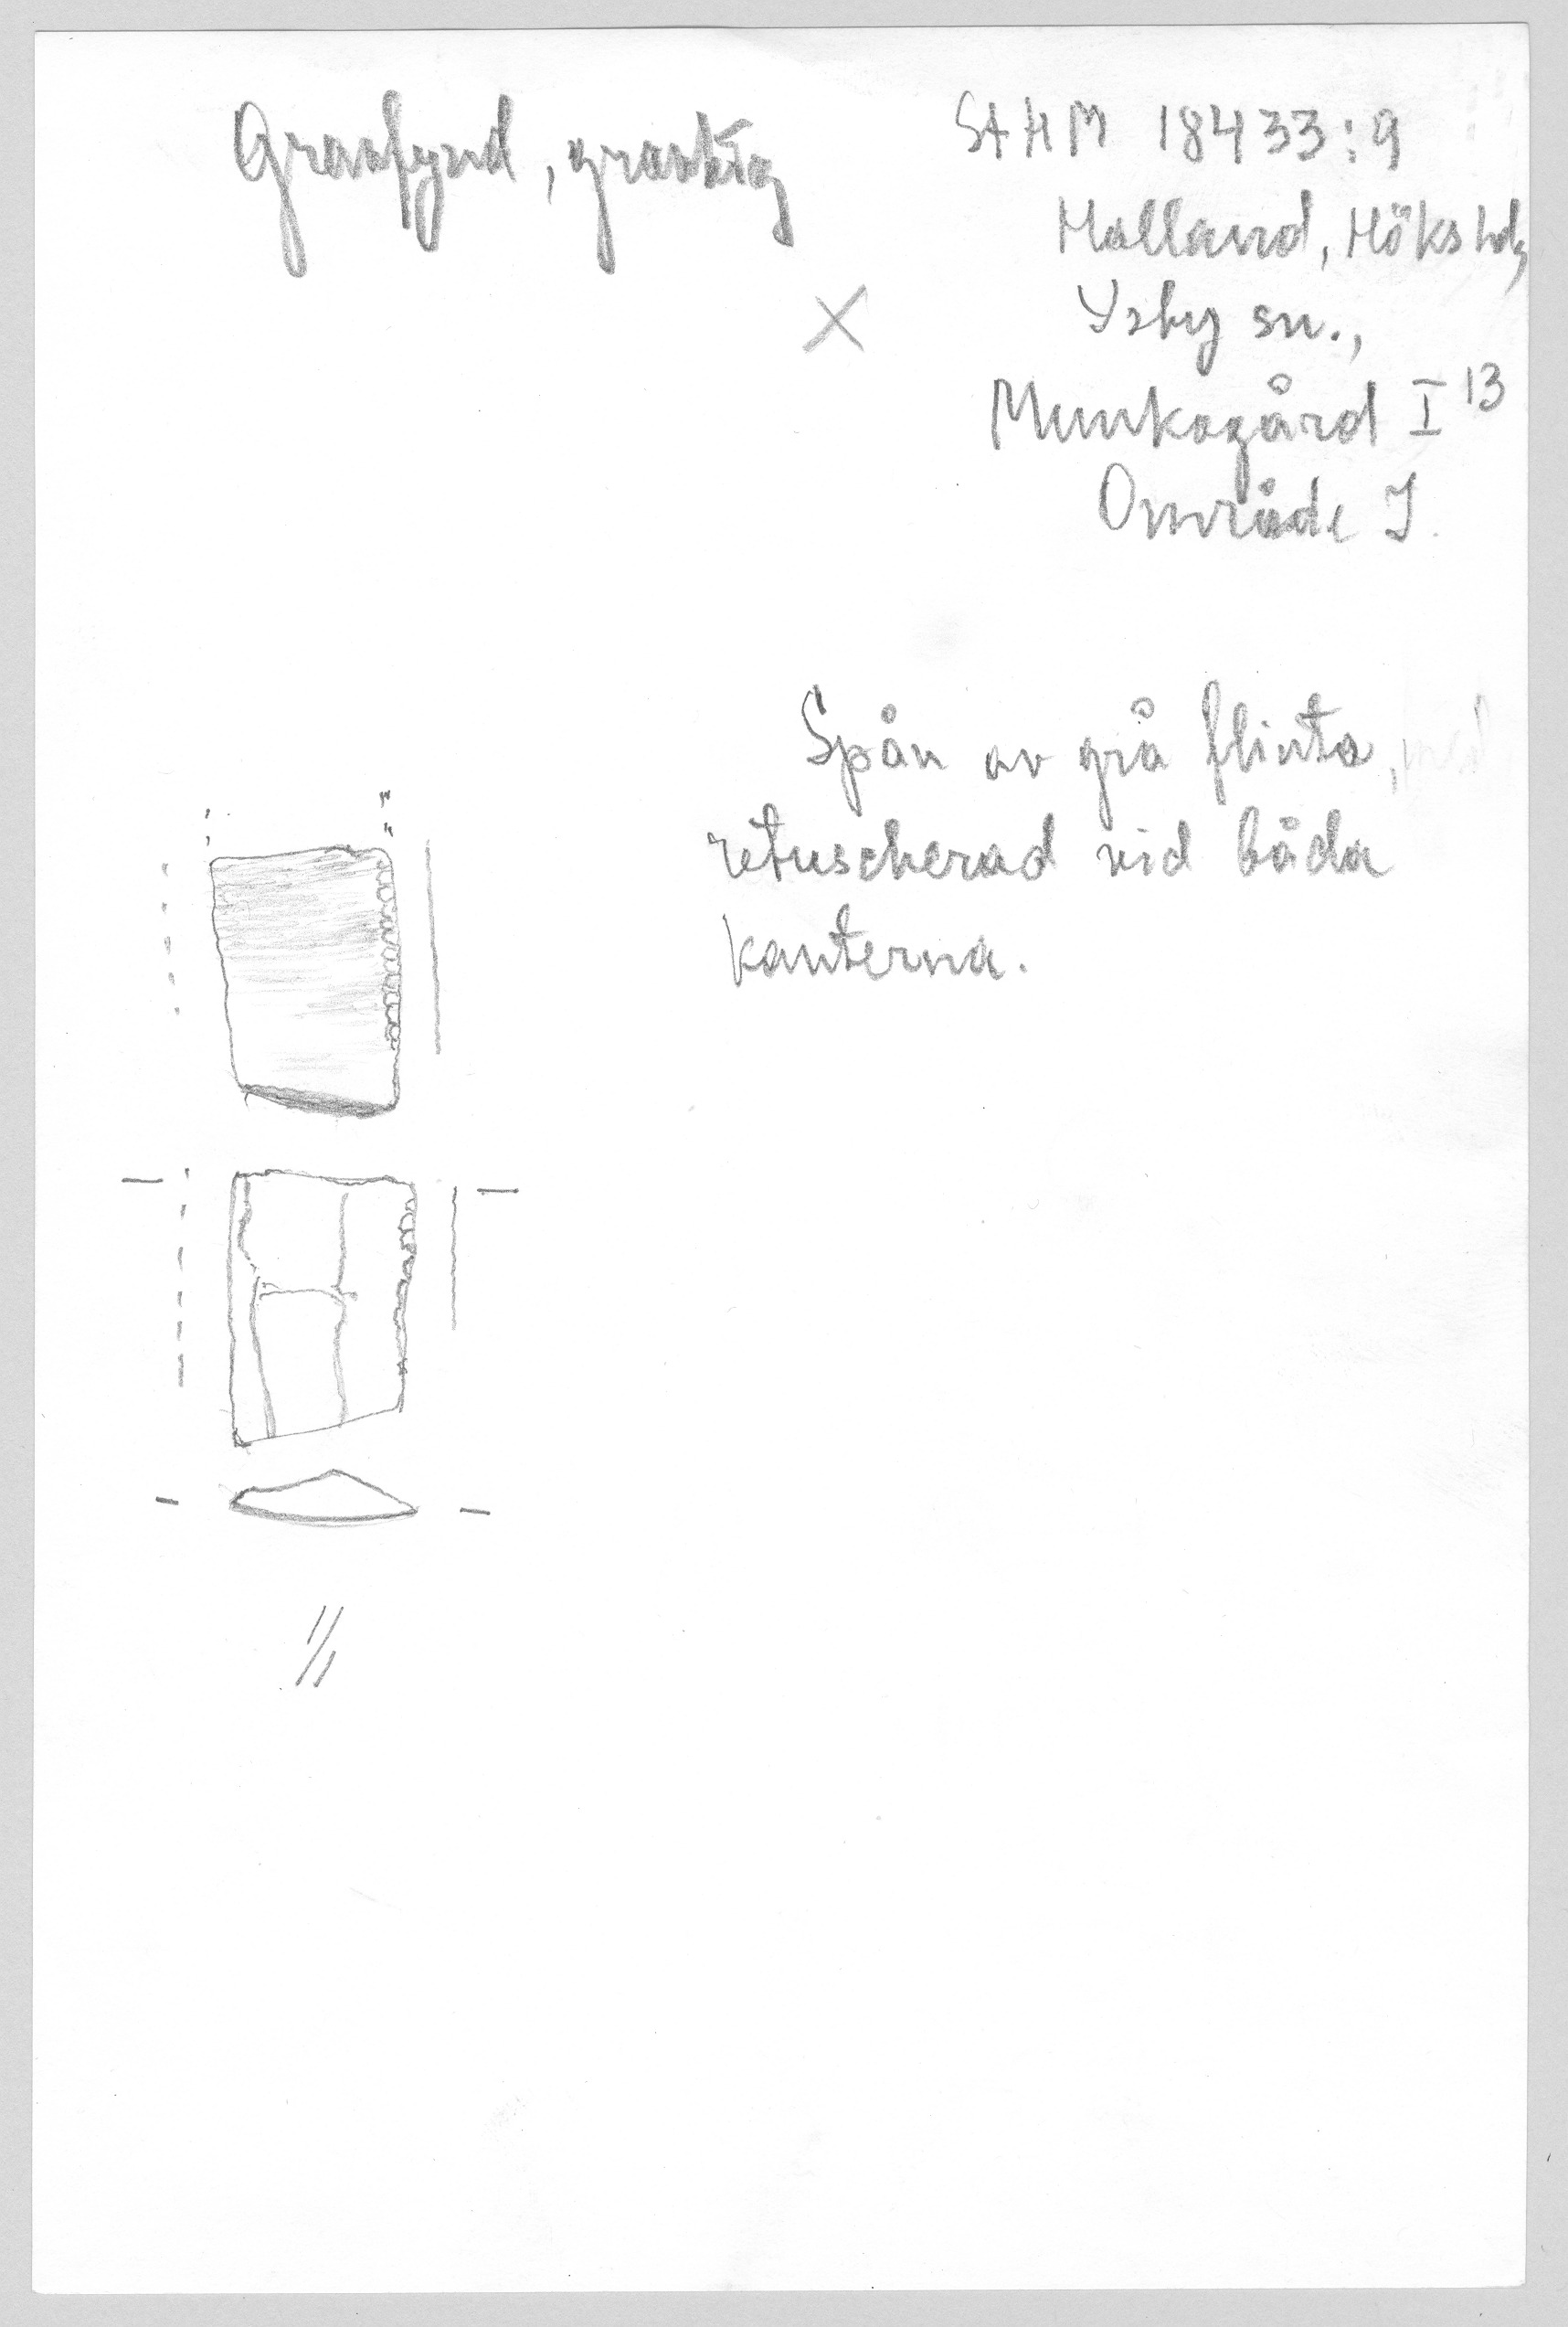 Gravfynd, gravtäg
StHM 18433:9
Halland, Höks hd,
Ysby sn.,
Munkagård I 13
Område I.
Spån av grå flinta,
retuscherad vid båda
kanterna.
1/1